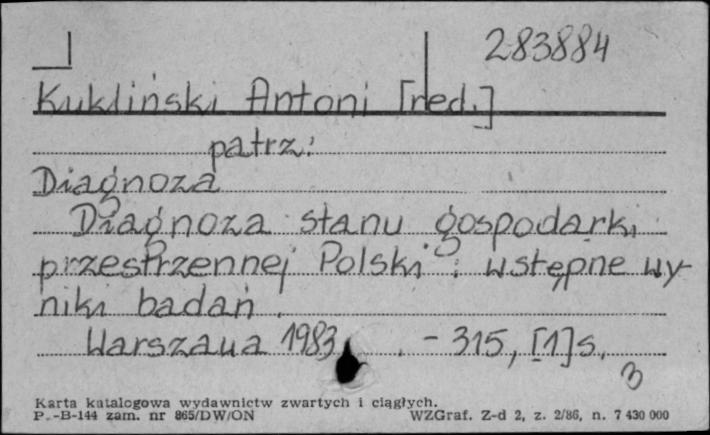 283884
Kukliński Antoni [red.]
patrz:
Diagnoza
Diagnoza stanu gospodarki
przestrzennej Polski : wstępne wy-
niki badań .
Warszawa 1983 . - 315, [1] s.
3
Karta katalogowa wydawnictw zwartych i ciągłych.
P.-B-144 zam. nr 865/DW/ON WZGraf. Z-d 2, z. 2/86, n. 7 430 000